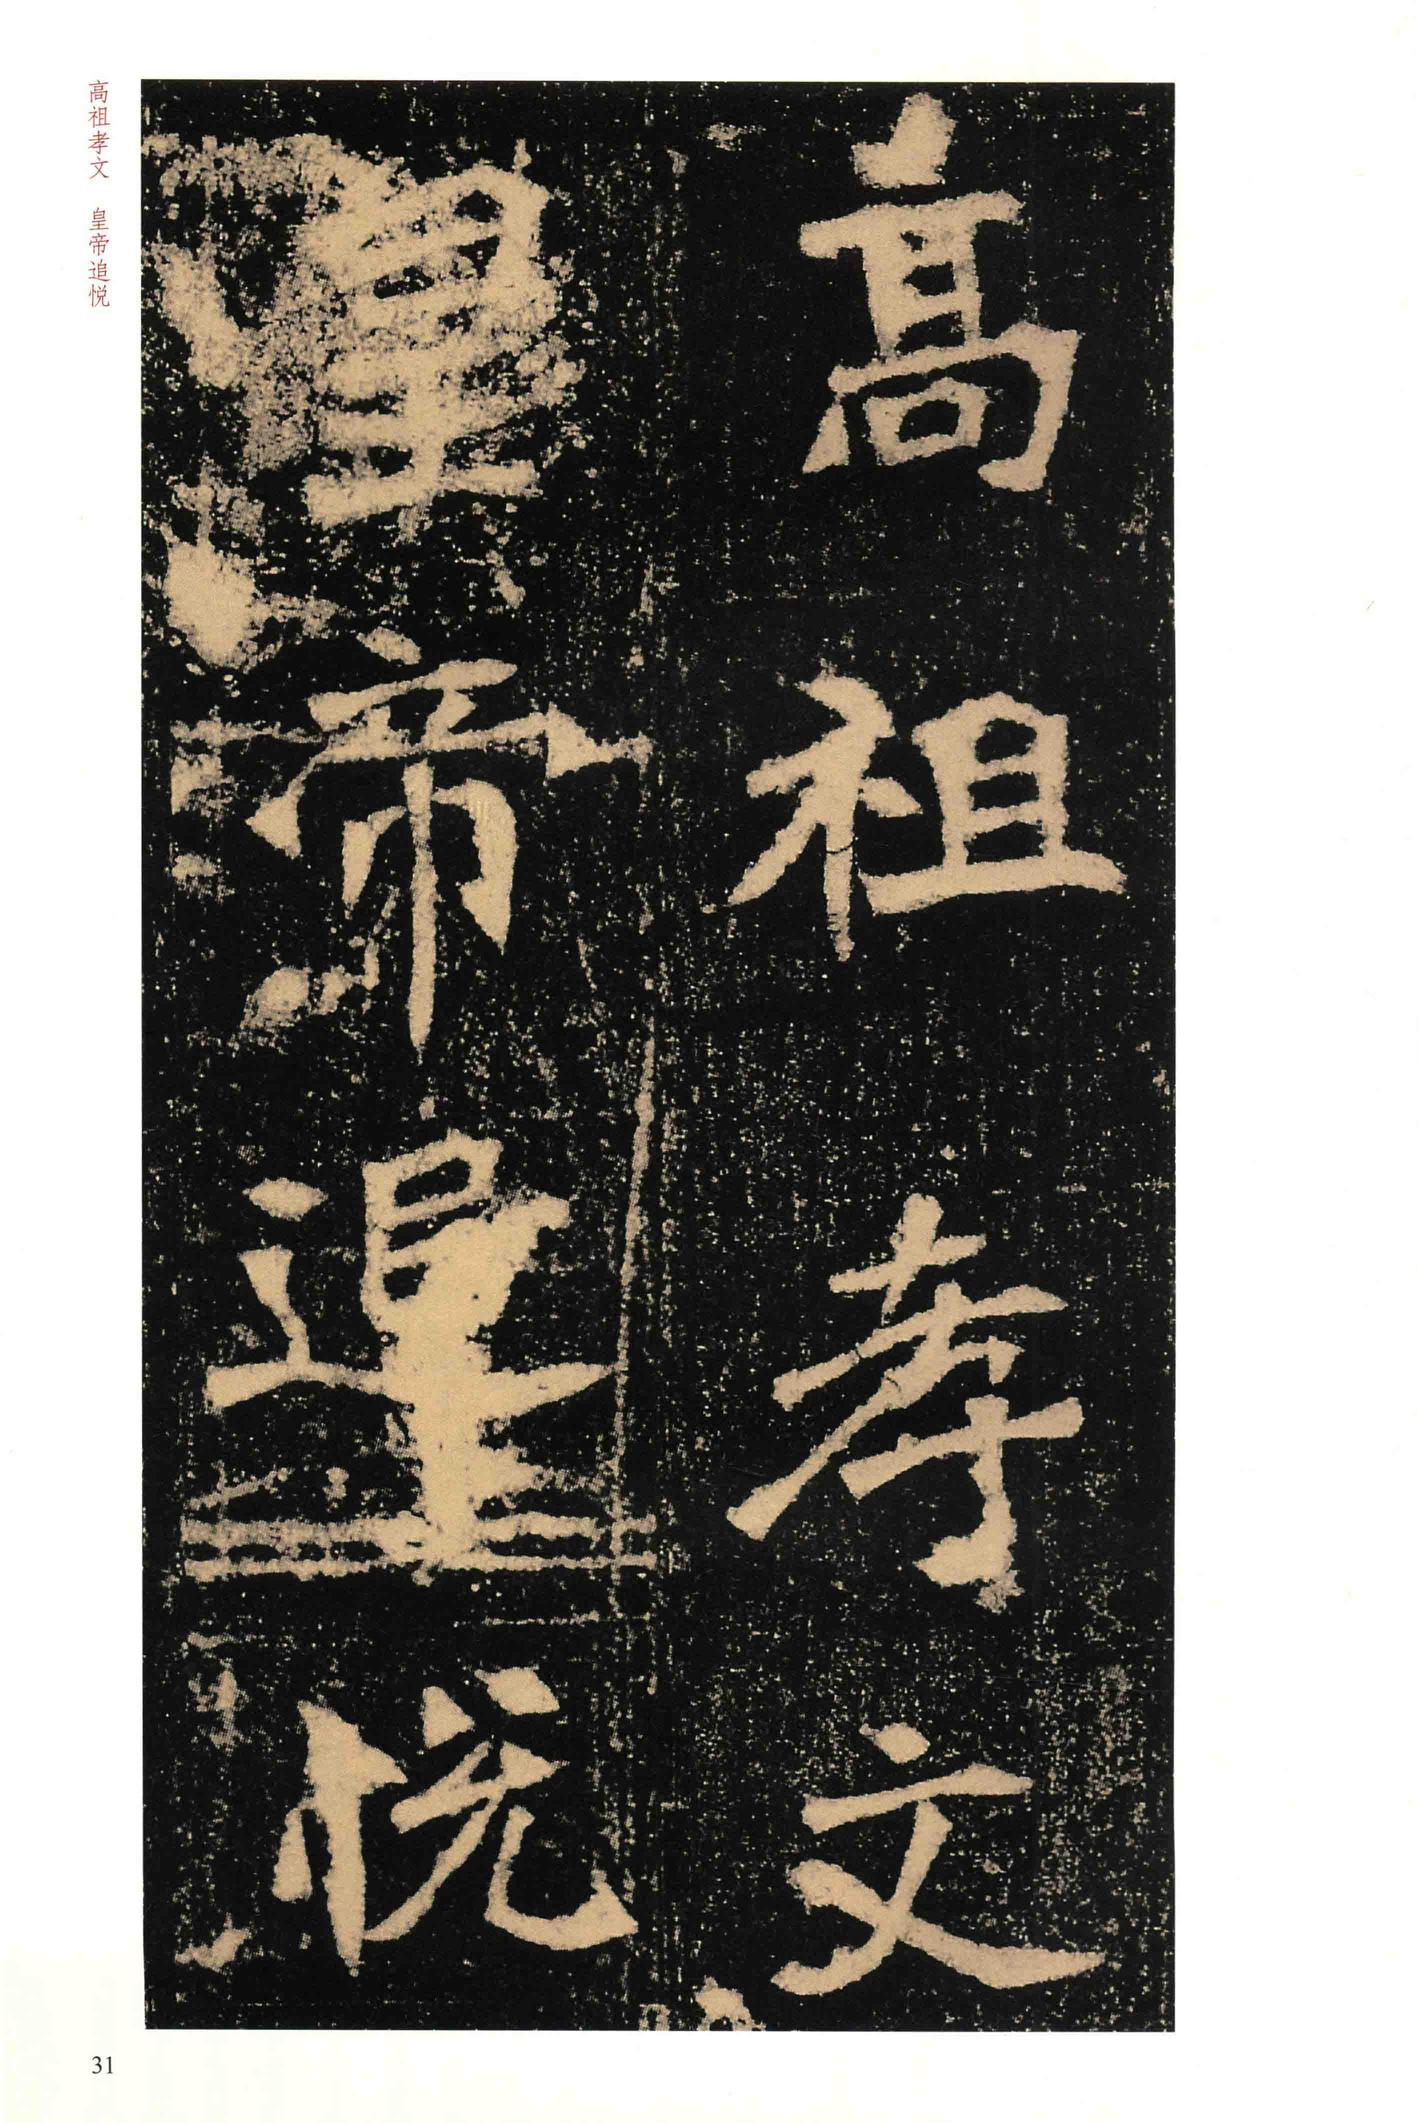 高祖孝文
皇帝追悦
高祖孝文 皇帝追悦
31